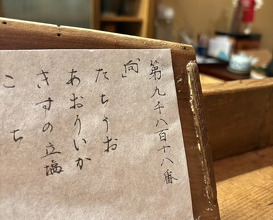 第九千八百十八番
「向」
たちうお
あおういか
きすの立塩
こち